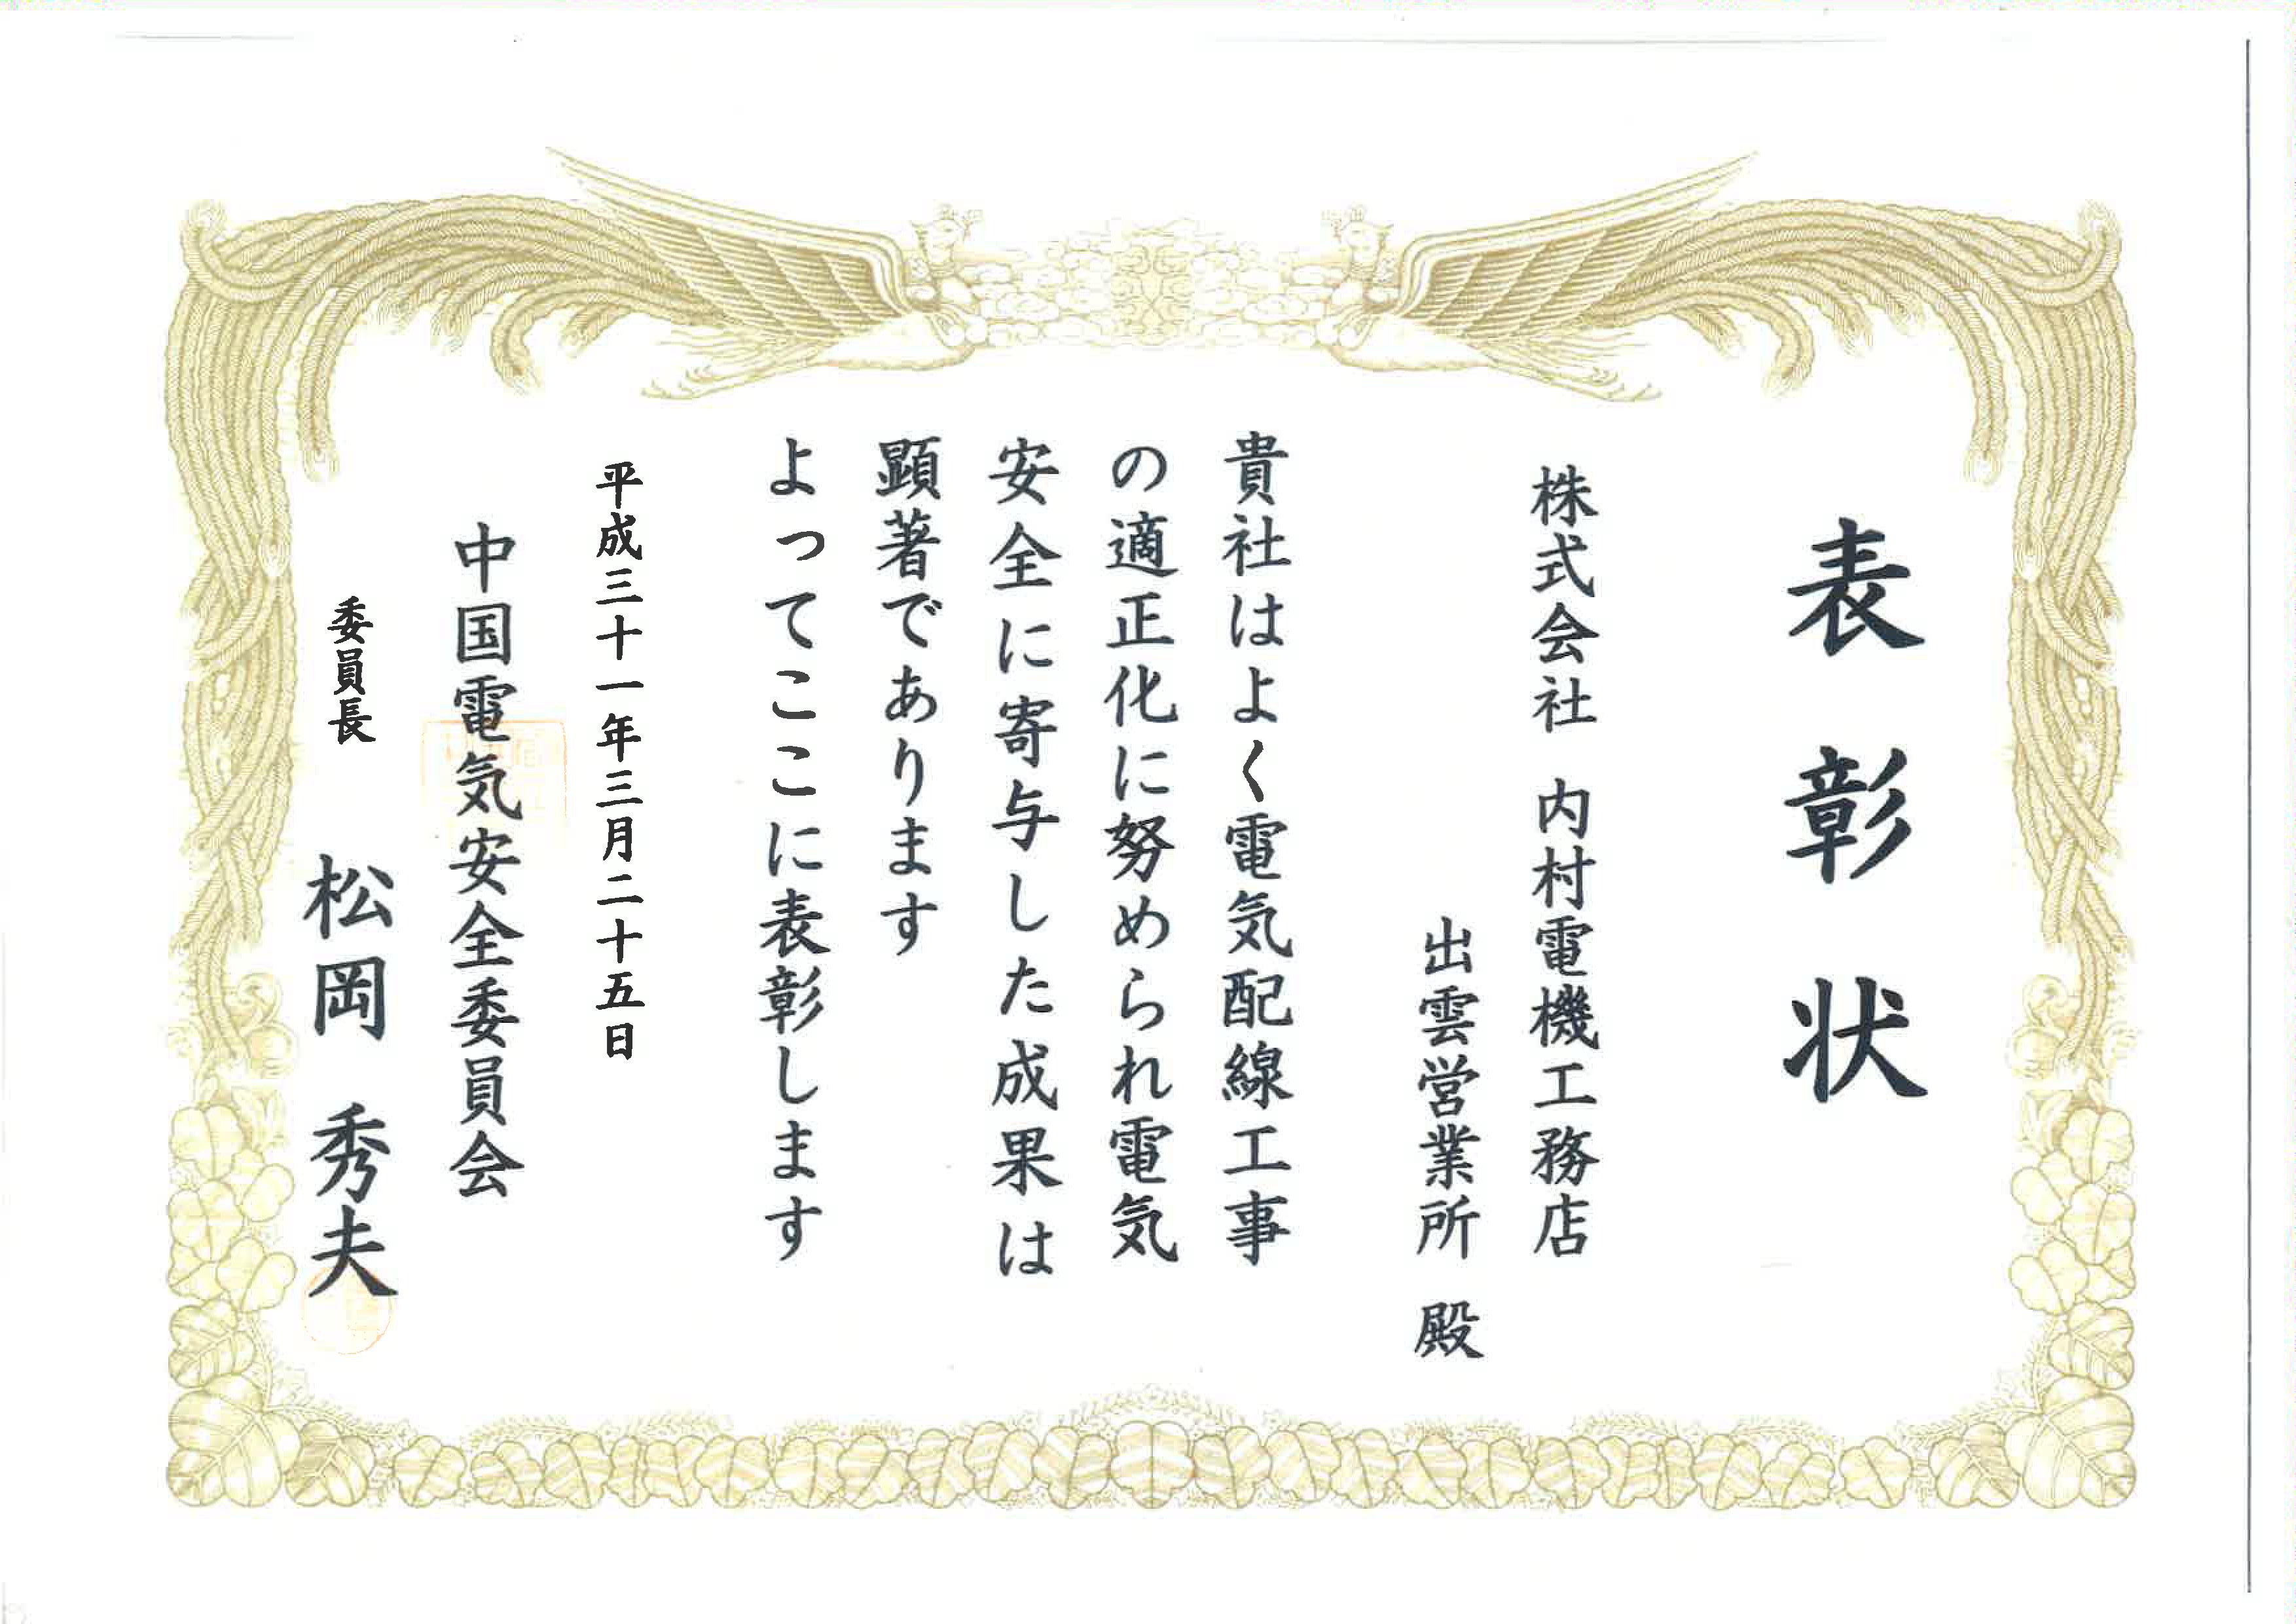 表彰状
株式会社 内村電機工務店
出雲営業所 殿
貴社はよく電気配線工事
の適正化に努められ電気
安全に寄与した成果は
顕著であります
よってここに表彰します
平成三十一年三月二十五日
中国電気安全委員会
委員長 松岡 秀夫